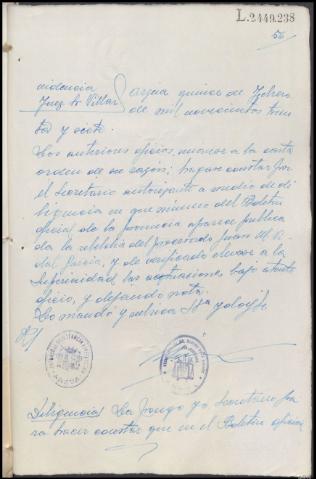 L.2449.238
52
videncia
Juez Sr Villar
quince de Febrero
de mil novecientos trein
ta y siete.
Los anteriores oficios, unanse a la causa
orden de su razón; hagase constar por
el Secretario autorizante a medio de di
ligencia en que número del Boletin
oficial de la provincia aparece publica
da la rebeldia del procesado Juan M. Vi
dal Garcia, y de verificado elevese a la
Superioridad las actuaciones bajo atento
oficio, y dejando nota.
Lo mandó y rubrica Sª y doy fe.
R/
Diligencia La pongo yo Secretario pa
ra hacer constar que en el Boletin oficial